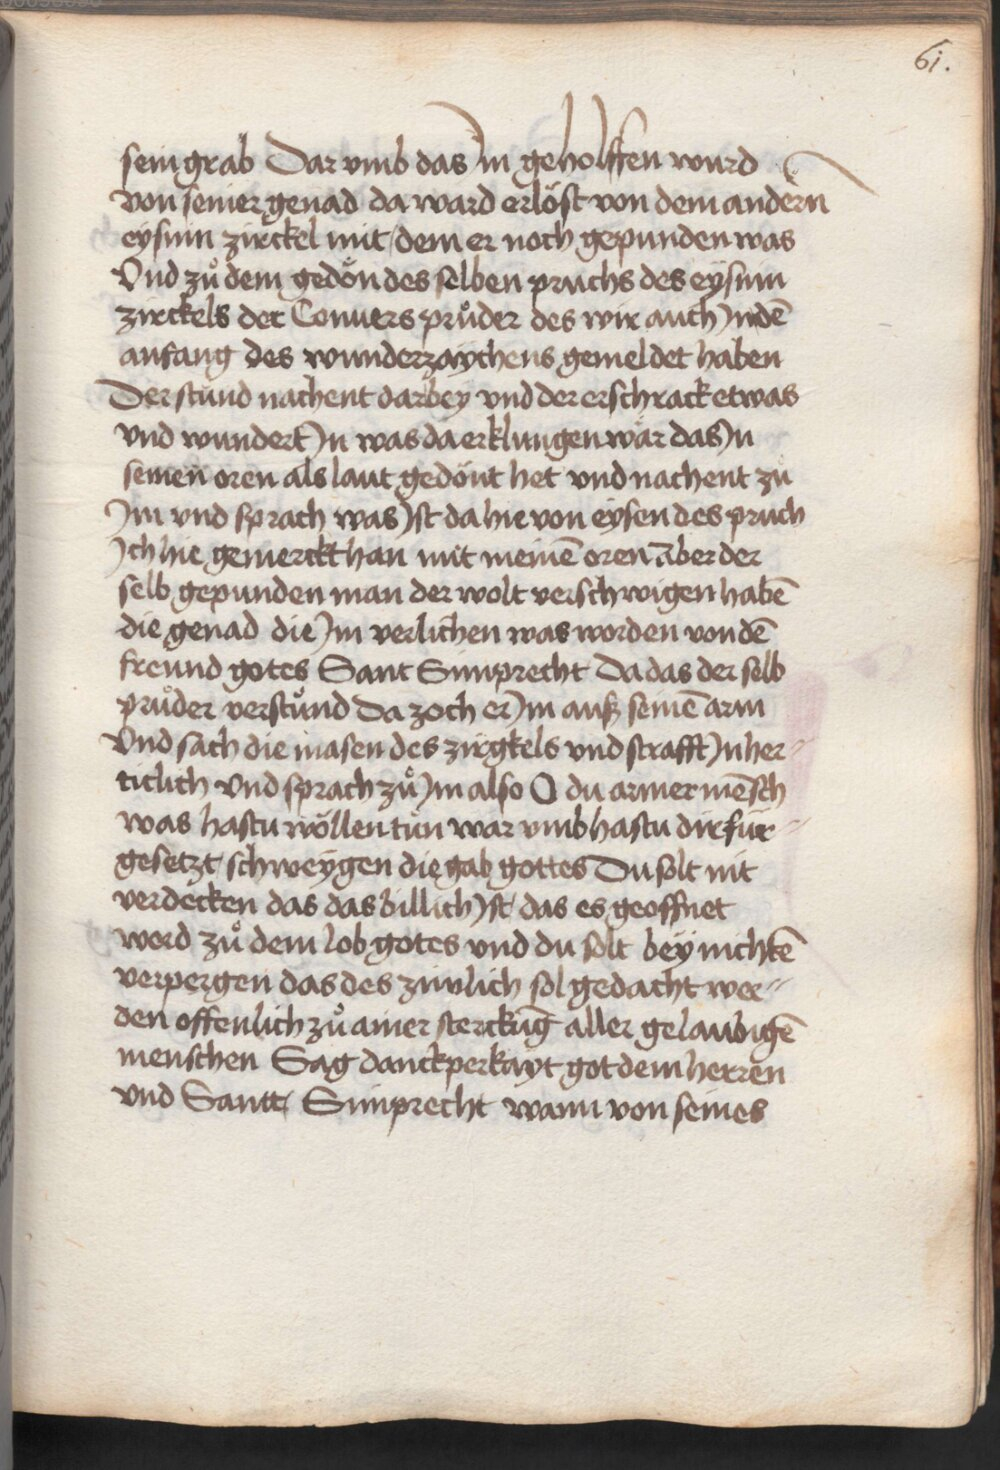 61.
sein grab Dar vmb das Im geholffen wurd
von seiner genad da ward erlöst von dem andern
eysnin zirckel mit dem er noch gepunden was
Vnd zů dem gedön des selben pruchs des eysnin
zirckels der Conuers průder des wir auch In dē
anfang des wunderzaychens gemeldet haben
Der stund nachent darbey vnd der erschrack etwas
vnd wundert In was da erklungen wär das In
seinen oren als laut gedönt het vnd nachent zů
Im vnd sprach was Ist da hie von eysen des pruch
Ich hie gemerckt han mit meinē oren aber der
selb gepunden man der wolt verschwigen habē
die genad die Im verlichen was worden von dē
freund gotes Sant Simprecht Da das der selb
průder verstůnd Da zoch er Im auß seinē arm
Vnd sach die masen des zirgkels vnd strafft In her-
ticlich Vnd sprach zů Im also O du armer mēsch
was hastu wöllen tůn war vmb hastu dir für-
gesetzt schweygen die gab gottes Du solt nit
verdecken das das billich Ist das es geoffnet
werd zů dem lob gotes vnd du solt bey nichtē
verpergen das des zimlich sol gedacht wer-
den offenlich zů ainer sterckūg aller gelaubigē
menschen Sag danckperkayt got dem herren
vnd Santt Simprecht wann von seines